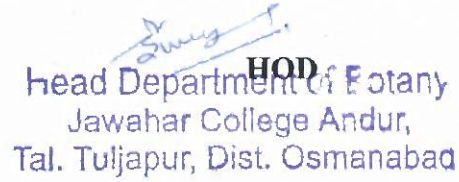 HOD
Head Department of Botany
Jawahar College Andur,
Tal. Tuljapur, Dist. Osmanabad